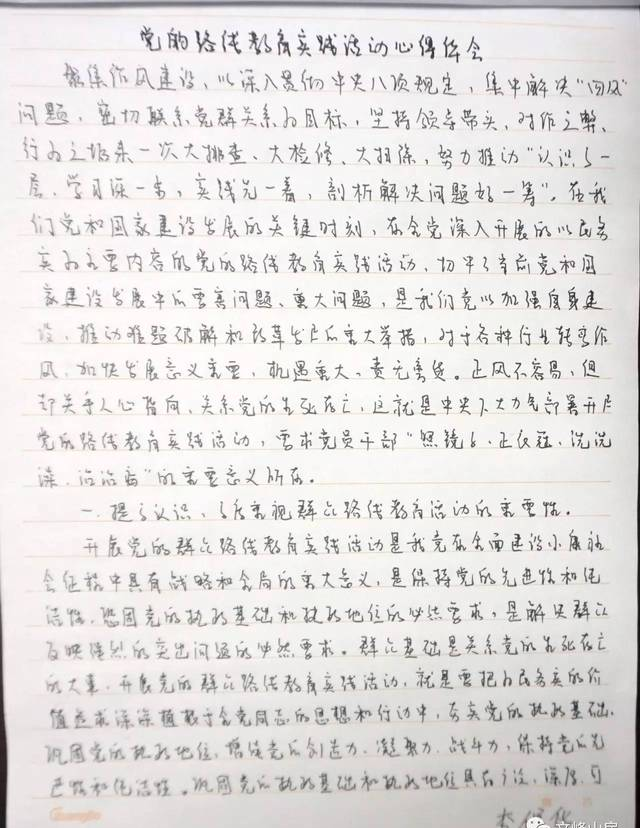 党的路线教育实践活动心得体会
聚集作风建设，以深入贯彻中央八项规定，集中解决“四风”
问题，密切联系党群关系为目标，坚持领导带头，对作之弊、
行为之垢来一次大排查、大检修、大扫除，努力推动“认识高一
层、学习深一步，实践先一着，剖析解决问题好一筹”。在我
们党和国家建设发展的关键时刻，在全党深入开展的以为民务
实为主要内容的党的路线教育实践活动，切中了当前党和国
家建设发展中的要害问题、重大问题，是我们党以加强自身建
设，推动难题破解和改革发展的重大举措，对于各种行业转变作
风，加快发展意义重要，机遇重大、责无旁贷。正风不容易，但
却关乎人心背向、关系党的生死存亡，这就是中央下大力气部署开展
党的路线教育实践活动，要求党员干部“照镜子、正衣冠、洗洗
澡、治治病”的重要意义所在。
一、提高认识，高度重视群众路线教育活动的重要性。
开展党的群众路线教育实践活动是我党在全面建设小康社
会征程中具有战略和全局的重大意义，是保持党的先进性和纯
洁性、巩固党的执政基础和执政地位的必然要求，是解决群众
反映强烈的突出问题的必然要求。群众基础是关系党的生死存亡
的大事，开展党的群众路线教育实践活动，就是要把为民务实的价
值追求深深植根于全党同志的思想和行动中，夯实党的执政基础、
巩固党的执政地位，增强党的创造力、凝聚力、战斗力，保持党的先
进性和纯洁性。巩固党的执政基础和执政地位具有广泛、深厚、可
Guangbo